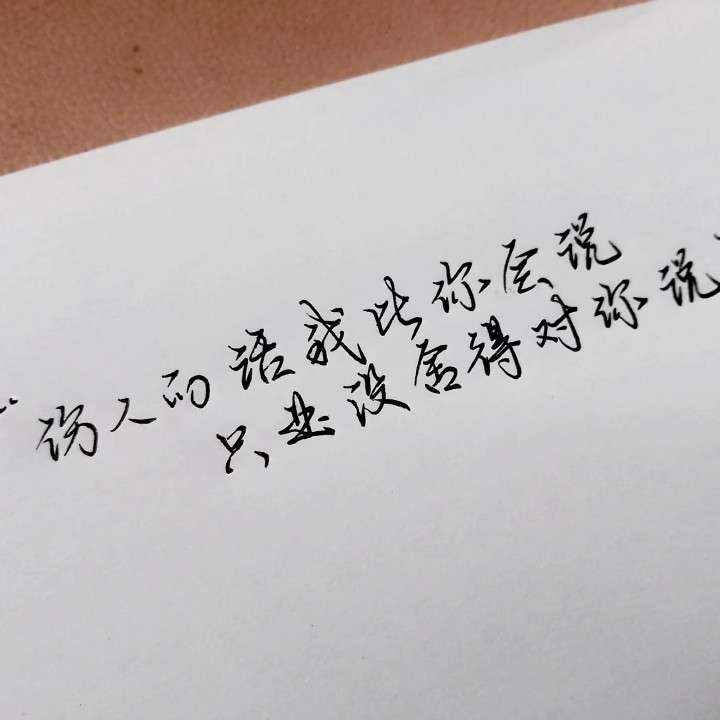 “伤人的话我比你会说
只是没舍得对你说”